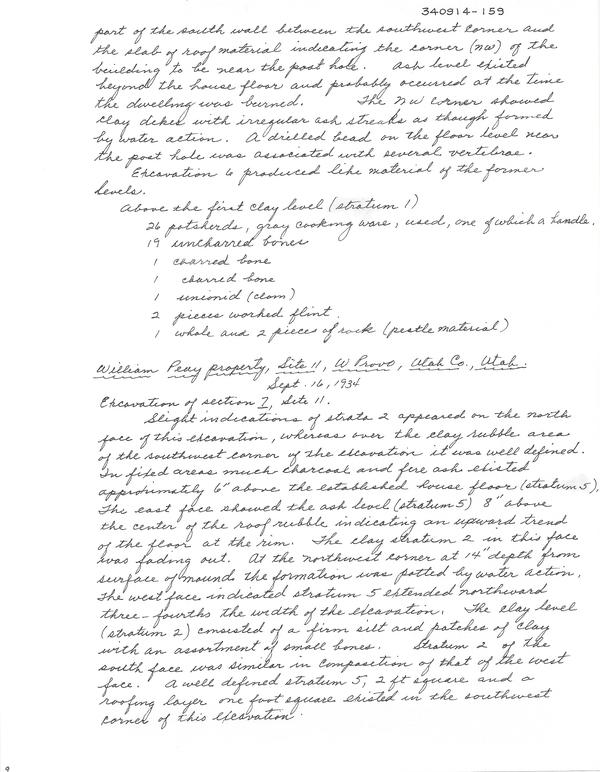 340914-159
part of the south wall between the southwest corner and
the slab of roof material indicating the corner (NW) of the
building to be near the post hole. Ash level existed
beyond the house floor and probably occurred at the time
the dwelling was burned. The NW corner showed
clay dikes with irregular ash streaks as though formed
by water action. A drilled bead on the floor level near
the post hole was associated with several vertebrae.
Excavation 6 produced like material of the former
levels.
Above the first clay level (stratum 1)
26 potsherds, gray cooking ware, used, one of which a handle.
19 uncharred bones
1 charred bone
1 charred bone
1 unionid (clam)
2 pieces worked flint.
1 whole and 2 pieces of rock (pestle material)
William Peay property, Site 11, W Provo, Utah Co., Utah.
Sept. 16, 1934
Excavation of section I, Site 11.
Slight indications of strata 2 appeared on the north
face of this excavation, whereas over the clay rubble area
of the southwest corner of the excavation it was well defined.
In fixed areas much charcoal and fire ash existed
approximately 6" above the established house floor (stratum 5).
The east face showed the ash level (stratum 5) 8" above
the center of the roof rubble indicating an upward trend
of the floor at the rim. The clay stratum 2 in this face
was fading out. At the northwest corner at 14" depth from
surface of mound the formation was potted by water action.
The west face indicated stratum 5 extended northward
three-fourths the width of the excavation. The clay level
(stratum 2) consisted of a firm silt and patches of clay
with an assortment of small bones. Stratum 2 of the
south face was similar in composition of that of the west
face. A well defined stratum 5, 2 ft square and a
roofing layer one foot square existed in the southwest
corner of this excavation.
9